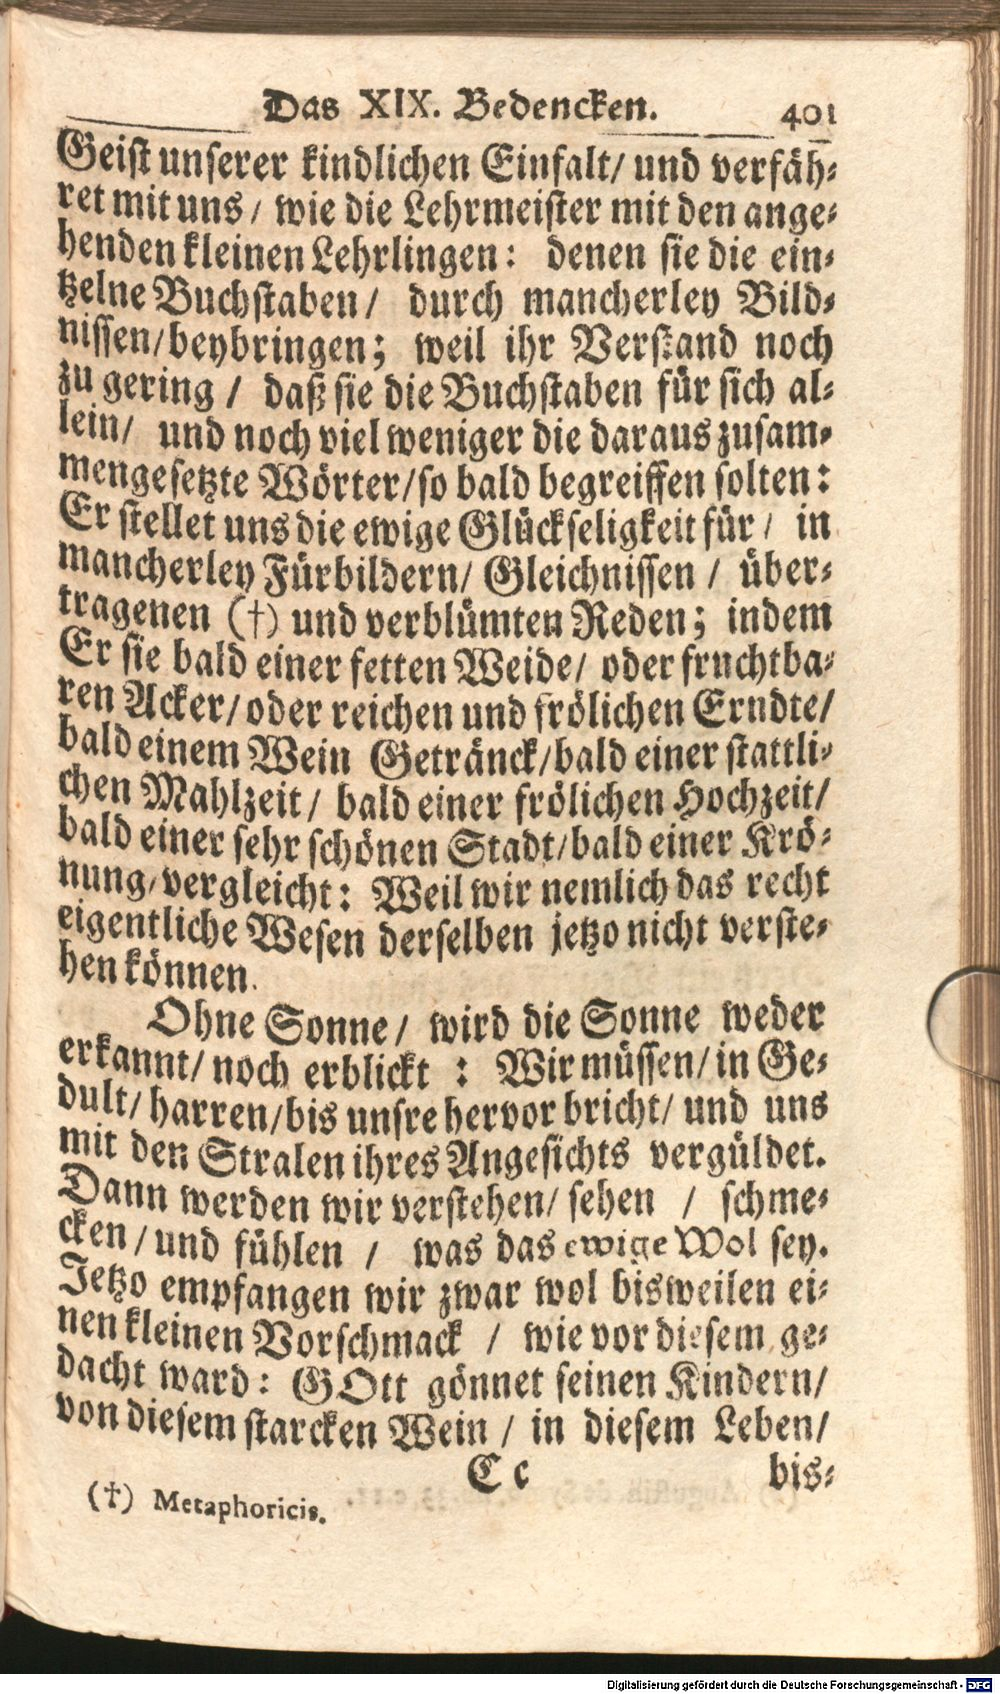 Das XIX. Bedencken. 401
Geist unserer kindlichen Einfalt/ und verfäh⸗
ret mit uns/ wie die Lehrmeister mit den ange⸗
henden kleinen Lehrlingen: denen sie die ein⸗
tzelne Buchstaben/ durch mancherley Bild⸗
nissen/beybringen; weil ihr Verstand noch
zu gering/ daß sie die Buchstaben für sich al⸗
lein/ und noch viel weniger die daraus zusam⸗
mengesetzte Wörter/so bald begreiffen solten:
Er stellet uns die ewige Glückseligkeit für/ in
mancherley Fürbildern/ Gleichnissen/ über⸗
tragenen (†) und verblümten Reden; indem
Er sie bald einer fetten Weide/ oder fruchtba⸗
ren Acker/oder reichen und frölichen Erndte/
bald einem Wein Getränck/bald einer stattli⸗
chen Mahlzeit/ bald einer frölichen Hochzeit/
bald einer sehr schönen Stadt/bald einer Krö⸗
nung/vergleicht: Weil wir nemlich das recht
eigentliche Wesen derselben jetzo nicht verste⸗
hen können.
Ohne Sonne/ wird die Sonne weder
erkannt/ noch erblickt: Wir müssen/in Ge⸗
dult/harren/bis unsre hervor bricht/ und uns
mit den Stralen ihres Angesichts vergüldet.
Dann werden wir verstehen/ sehen/ schme⸗
cken/und fühlen/ was das ewige Wol sey.
Jetzo empfangen wir zwar wol bisweilen ei⸗
nen kleinen Vorschmack/ wie vor diesem ge⸗
dacht ward: GOtt gönnet seinen Kindern/
von diesem starcken Wein/ in diesem Leben/
C c bis⸗
(†) Metaphoricis.
Digitalisierung gefördert durch die Deutsche Forschungsgemeinschaft - DFG